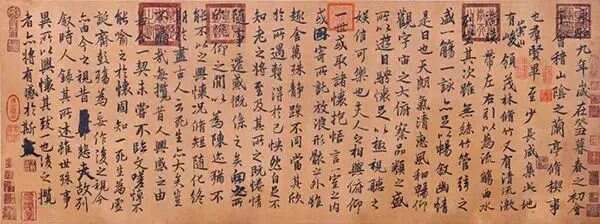 永和九年歲在癸丑暮春之初會
于會稽山陰之蘭亭脩稧事
也羣賢畢至少長咸集此地
有崇山峻領茂林脩竹又有清流激
湍暎帶左右引以為流觴曲水
列坐其次雖無絲竹管弦之
盛一觴一詠亦足以暢叙幽情
是日也天朗氣清惠風和暢仰
觀宇宙之大俯察品類之盛
所以遊目騁懷足以極視聽之
娛信可樂也夫人之相與俯仰
一世或取諸懷抱悟言一室之內
或因寄所託放浪形骸之外雖
趣舍萬殊靜躁不同當其欣
於所遇蹔得於己怏然自足不
知老之將至及其所之既惓情
隨事遷感慨係之矣向之所欣
俛仰之閒以為陳迹猶不
能不以之興懷況脩短隨化終
期於盡古人云死生亦大矣豈
不痛哉每攬昔人興感之由
若合一契未嘗不臨文嗟悼不
能喻之於懷固知一死生為虛
誕齊彭殤為妄作後之視今
亦由今之視昔悲夫故列
叙時人錄其所述雖世殊事
異所以興懷其致一也後之攬
者亦將有感於斯文